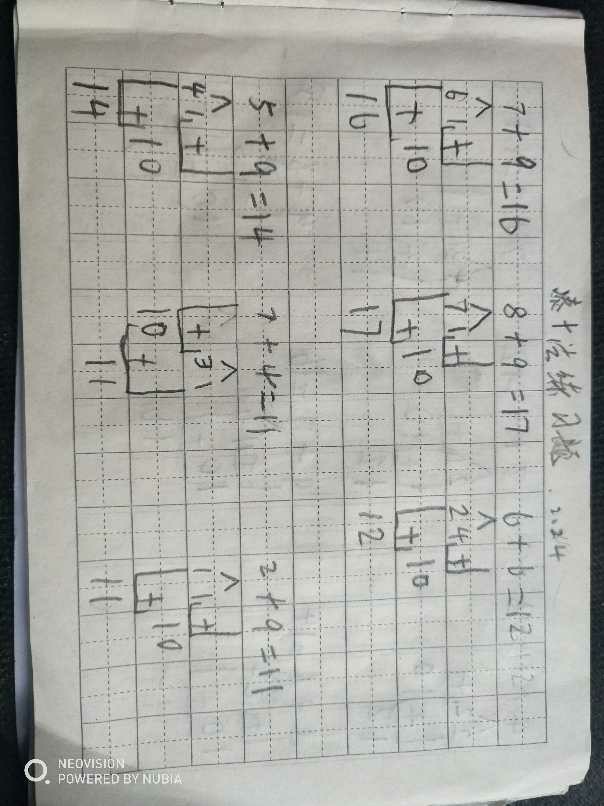 凑十法练习题 2.24
7+9=16 8+9=17 6+6=12
6 1 + 7 1 + 2 4 +
+ 10 + 10 + 10
16 17 12
5+9=14 7+4=11 2+9=11
4 1 + + 3 1 1 1 +
+ 10 10 + + 10
14 11 11
NEOVISION
POWERED BY NUBIA